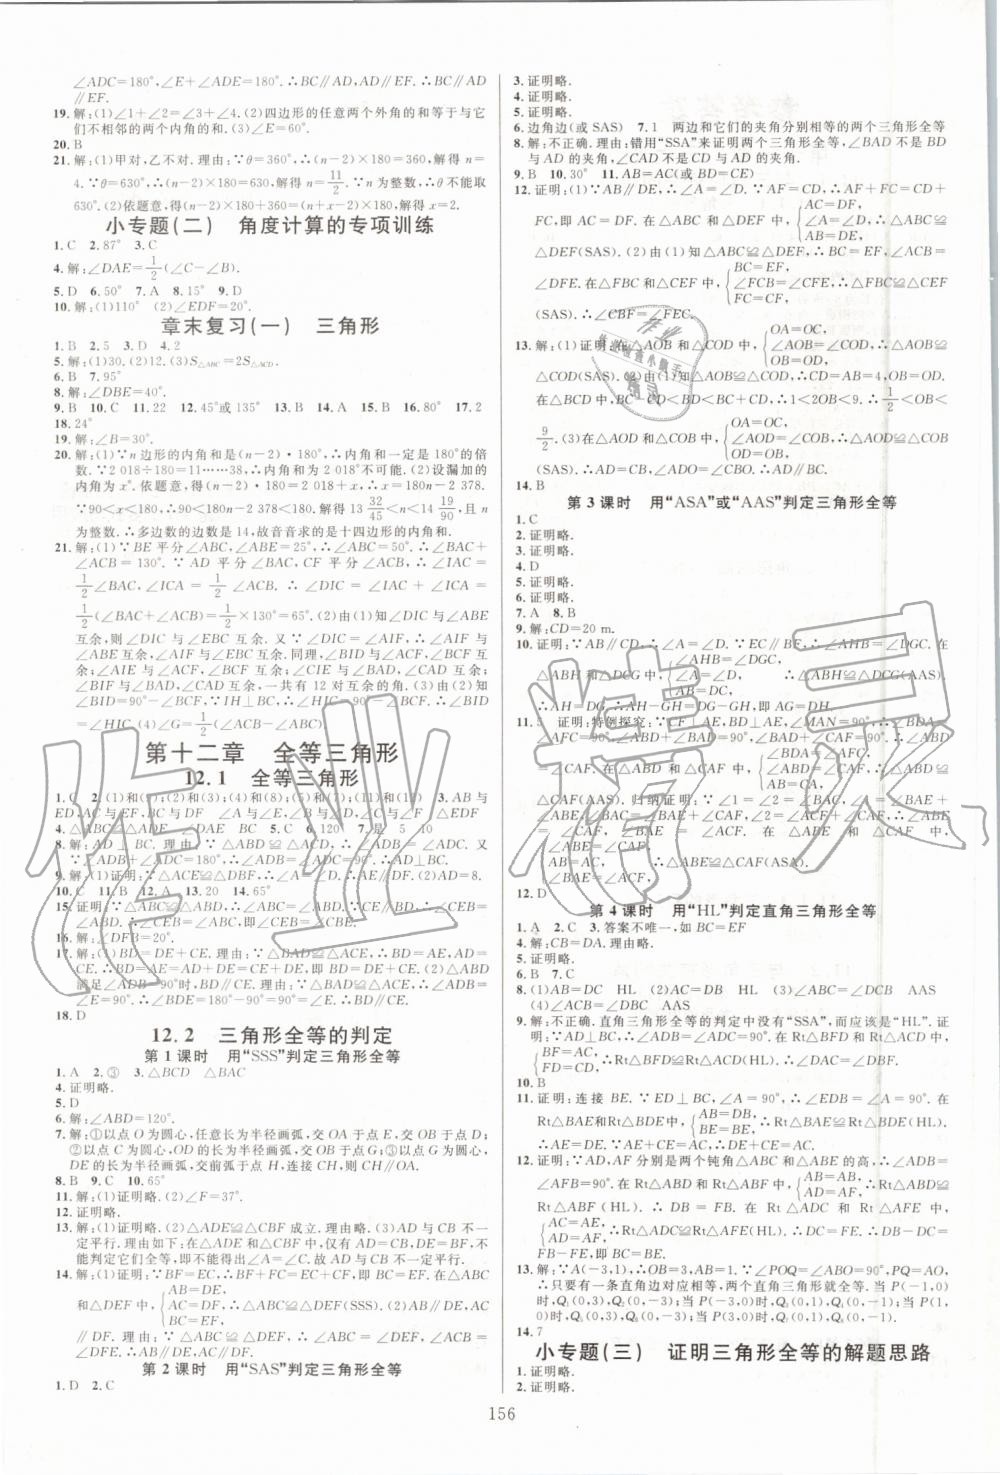 ∠ADC=180°,∠E+∠ADE=180°.∴BC∥AD,AD∥EF.∴BC∥AD∥
EF.
19.解:(1)∠1+∠2=∠3+∠4.(2)四边形的任意两个外角的和等于与它
们不相邻的两个内角的和.(3)∠E=60°.
20.B
21.解:(1)甲对,乙不对.理由:∵θ=360°,∴(n-2)×180=360,解得n=
4.∵θ=630°,∴(n-2)×180=630,解得n=11/2.∵n为整数,∴θ不能取
630°.(2)依题意,得(n-2)×180+360=(n+x-2)×180,解得x=2.
小专题(二) 角度计算的专项训练
1.C 2.87° 3.C
4.解:∠DAE=1/2(∠C-∠B).
5.D 6.50° 7.A 8.15° 9.D
10.解:(1)110° (2)∠EDF=20°.
章末复习(一) 三角形
1.B 2.5 3.D 4.2
5.解:(1)30.(2)12.(3)S△ABC=2S△ACD.
6.B 7.95°
8.解:∠DBE=40°.
9.B 10.C 11.22 12.45°或135° 13.B 14.A 15.B 16.80° 17.2
18.24°
19.解:∠B=30°.
20.解:(1)∵n边形的内角和是(n-2)·180°,∴内角和一定是180°的倍
数.∵2 018÷180=11……38,∴内角和为2 018°不可能.(2)设漏加的
内角为x°.依题意,得(n-2)·180=2 018+x,∴x=180n-2 378.
∵90<x<180,∴90<180n-2 378<180.解得13 32/45<n<14 19/90,且n
为整数.∴多边形的边数是14,故音音求的是十四边形的内角和.
21.解:(1)∵BE平分∠ABC,∠ABE=25°,∴∠ABC=50°.∴∠BAC+
∠ACB=130°.∵AD平分∠BAC,CF平分∠ACB,∴∠IAC=
1/2∠BAC,∠ICA=1/2∠ACB.∴∠DIC=∠IAC+∠ICA=
1/2(∠BAC+∠ACB)=1/2×130°=65°.(2)由(1)知∠DIC与∠ABE
互余,则∠DIC与∠EBC互余.又∵∠DIC=∠AIF,∴∠AIF与
∠ABE互余,∠AIF与∠EBC互余.同理,∠BIF与∠IAC互余,
∠AIE与∠ACF互余,∠AIE与∠BCF互余,∠EIC与∠BAD互余,
∠BIF与∠BAD互余,一共有12对互余的角.(3)由(2)知
∠BID=90°-∠BCF,∵IH⊥BC,∴∠HIC=90°-∠BCF.∴∠BID
=∠HIC.(4)∠G=1/2(∠ACB-∠ABC).
第十二章 全等三角形
12.1 全等三角形
1.C 2.(1)和(9);(2)和(3);(4)和(8);(5)和(7);(11)和(12) 3.AB与
ED,AC与EF,BC与DF ∠A与∠E,∠B与∠D,∠ACB与∠EDF
4.△ABC≌△ADE ∠DAE BC 5.C 6.120° 7.是 5 10
8.解:AD⊥BC.理由:∵△ABD≌△ACD,∴∠ADB=∠ADC.又
∵∠ADB+∠ADC=180°,∴∠ADB=∠ADC=90°.∴AD⊥BC.
9.解:(1)证明:∵△ACE≌△DBF,∴∠A=∠D.∴AE∥DF.(2)AD=8.
10.C 11.B 12.A 13.20 14.65°
15.证明:∵△ABC≌△ABD,∴∠ABC=∠ABD.∴∠CEB=
∠ABD.∴∠CEB=∠ABC.
16.解:∠DFB=20°.
17.解:(1)BD=DE+CE.理由:∵△BAD≌△ACE,∴BD=AE,
AD=CE.∴BD=AE=AD+DE=CE+DE,即BD=DE+CE.(2)△ABD
满足∠ADB=90°时,BD∥CE.理由:∵△BAD≌△ACE,∴∠ADB=
∠E=90°.∴∠BDE=180°-90°=90°=∠E.∴BD∥CE.
18.D
12.2 三角形全等的判定
第1课时 用“SSS”判定三角形全等
1.A 2.③ 3.△BCD △BAC
4.证明略.
5.D
6.解:∠ABD=120°.
7.解:①以点O为圆心,任意长为半径画弧,交OA于点E,交OB于点D;
②以点C为圆心,OD长为半径画弧,交OB于点G;③以点G为圆心,
DE的长为半径画弧,交前弧于点H,连接CH.则CH∥OA.
8.B 9.C 10.65°
11.解:(1)证明略.(2)∠F=37°.
12.证明略.
13.解:(1)证明略.(2)△ADE≌△CBF成立.理由略.(3)AD与CB不一
定平行.理由如下:在△ADE和△CBF中,仅有AD=CB,AE=CF,不
能判定它们全等,即不能得出∠A=∠C.故AD与CB不一定平行.
14.解:(1)证明:∵BF=EC,∴BF+FC=EC+CF,即BC=EF.在△ABC
和△DEF中,{AB=DE, AC=DF, BC=EF, ∴△ABC≌△DEF(SSS).(2)AB∥DE,AC
∥DF.理由:∵△ABC≌△DEF,∴∠ABC=∠DEF,∠ACB=
∠DFE.∴AB∥DE,AC∥DF.
第2课时 用“SAS”判定三角形全等
1.D 2.C
3.证明略.
4.证明略.
5.证明略.
6.边角边(或SAS) 7.1 两边和它们的夹角分别相等的两个三角形全等
8.解:不正确.理由:错用“SSA”来证明两个三角形全等,∠BAD不是BD
与AD的夹角,∠CAD不是CD与AD的夹角.
9.B 10.30° 11.AB=AC(或BD=CE)
12.证明:(1)∵AB∥DE,∴∠A=∠D.∵AF=CD,∴AF+FC=CD+
FC,即AC=DF.在△ABC和△DEF中,{AC=DF, ∠A=∠D, AB=DE, ∴△ABC≌
△DEF(SAS).(2)由(1)知△ABC≌△DEF,∴BC=EF,∠ACB=
∠DFE.在△FBC和△CEF中,{BC=EF, ∠FCB=∠CFE, FC=CF, ∴△FBC≌△CEF
(SAS).∴∠CBF=∠FEC.
13.解:(1)证明:在△AOB和△COD中,{OA=OC, ∠AOB=∠COD, OB=OD, ∴△AOB≌
△COD(SAS).(2)由(1)知△AOB≌△COD,∴CD=AB=4.
在△BCD中,BC-CD<BD<BC+CD,∴1<2OB<9.∴1/2<OB<
9/2.(3)在△AOD和△COB中,{OA=OC, ∠AOD=∠COB, OD=OB, ∴△AOD≌△COB
(SAS).∴AD=BC,∠ADO=∠CBO.∴AD∥BC.
14.B
第3课时 用“ASA”或“AAS”判定三角形全等
1.C
2.证明略.
3.证明略.
4.D
5.证明略.
6.证明略.
7.A 8.B
9.解:CD=20 m.
10.证明:∵AB∥CD,∴∠A=∠D.∵EC∥BF,∴∠AHB=∠DGC.在
△ABH和△DCG中,{∠A=∠D, ∠AHB=∠DGC, AB=DC, ∴△ABH≌△DCG(AAS).
∴AH=DG.∴AH-GH=DG-GH,即AG=DH.
11.5 证明:特例探究:∵CF⊥AE,BD⊥AE,∠MAN=90°,∴∠BDA=
∠AFC=90°,∠ABD+∠BAD=90°,∠BAD+∠CAF=90°.
∴∠ABD=∠CAF.在△ABD和△CAF中,{∠BDA=∠AFC, ∠ABD=∠CAF, AB=CA, ∴△ABD
≌△CAF(AAS).归纳证明:∵∠1=∠2=∠BAC,∠1=∠BAE+
∠ABE,∠BAC=∠BAE+∠CAF,∠2=∠FCA+∠CAF,∴∠ABE=
∠CAF,∠BAE=∠FCA.在△ABE和△CAF中,
{∠ABE=∠CAF, AB=AC, ∠BAE=∠FCA, ∴△ABE≌△CAF(ASA).
12.D
第4课时 用“HL”判定直角三角形全等
1.A 2.C 3.答案不唯一,如BC=EF
4.解:CB=DA.理由略.
5.证明略.
6.B 7.C
8.(1)AB=DC HL (2)AC=DB HL (3)∠ABC=∠DCB AAS
(4)∠ACB=∠DBC AAS
9.解:不正确.直角三角形全等的判定中没有“SSA”,而应该是“HL”.证明:
∵AD⊥BC,∴∠ADB=∠ADC=90°.在Rt△BFD和Rt△ACD中,
{BF=AC, FD=CD, ∴Rt△BFD≌Rt△ACD(HL).∴∠DBF=∠DAC.
10.B
11.证明:连接BE.∵ED⊥BC,∠A=90°,∴∠BDE=∠A=90°.在
Rt△BAE和Rt△BDE中,{AB=DB, BE=BE, ∴Rt△BAE≌Rt△BDE(HL).
∴AE=DE.∵AE+CE=AC,∴DE+CE=AC.
12.证明:∵AD,AF分别是两个钝角△ABC和△ABE的高,∴∠ADB=
∠AFB=90°.在Rt△ABD和Rt△ABF中,{AB=AB, AD=AF, ∴Rt△ABD≌
Rt△ABF(HL).∴DB=FB.在Rt△ADC和Rt△AFE中,
{AC=AE, AD=AF, ∴Rt△ADC≌Rt△AFE(HL).∴DC=FE.∴DB-DC=
FB-FE,即BC=BE.
13.解:∵A(-3,1),∴AB=3,AB⊥y轴.∵∠POQ=∠ABO=90°,PQ=AO,
∴只要有一条直角边对应相等,两个直角三角形就全等.当P(-1,0)
时,Q1(0,3),Q2(0,-3);当P(-3,0)时,Q3(0,1),Q4(0,-1);当P(1,
0)时,Q1(0,3),Q2(0,-3);当P(3,0)时,Q3(0,1),Q4(0,-1).
14.7
小专题(三) 证明三角形全等的解题思路
1.证明略.
2.证明略.
156
作业精灵